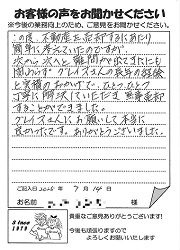 お客様の声をお聞かせください
※今後の業務向上のため、ご意見をお聞かせください。
この度、不動産を売却するにあたり
簡単に考えていたのですが、
次から次へと難問が出てきたにも
関わらず グレイスさんの長年の経験
と実績のおかげで、ひとつ、ひとつ
丁寧に解決していただき、無事売却
することができました。
グレイスさんにお願いして本当に
良かったです。ありがとうございました。
ご記入日 年 7月14日
お名前
Since
1979
貴重なご意見ありがとうございます!
今後も頑張りますので
よろしくお願いいたします